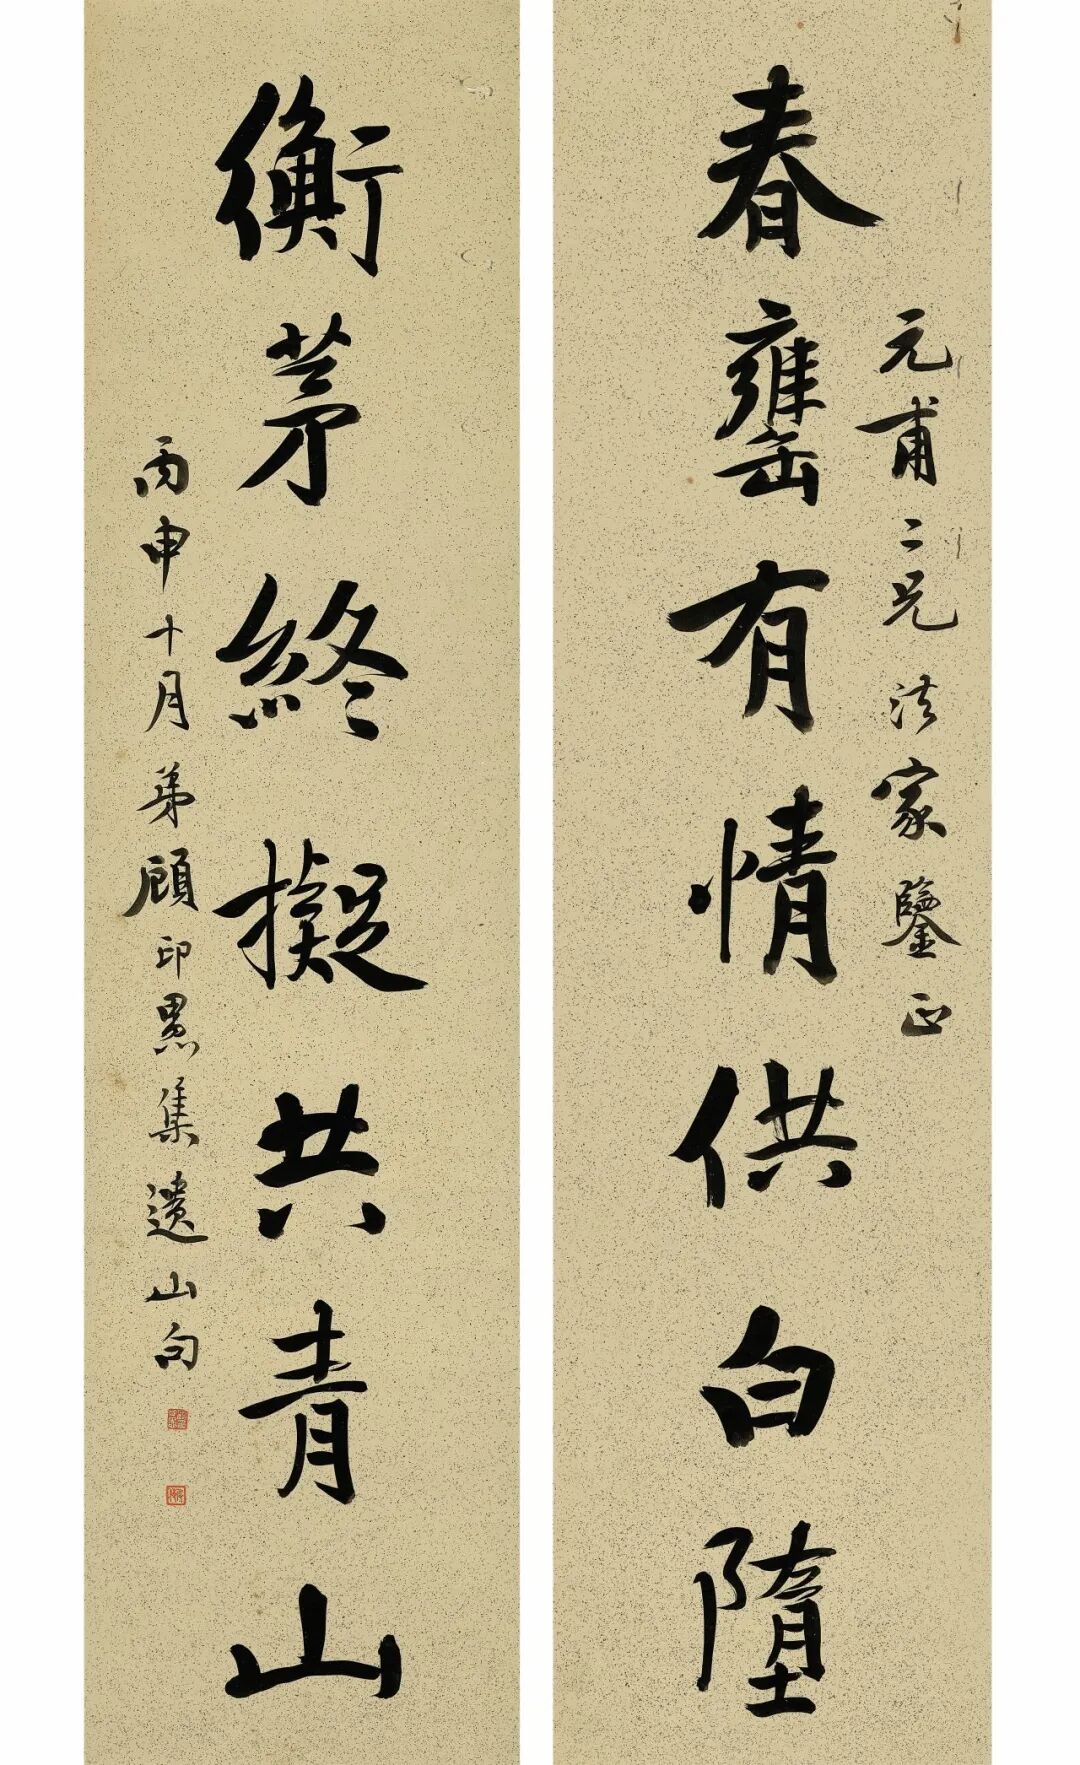 春罋有情供白墮
元甫二兄法家鑒正
衡茅終擬共青山
丙申十月弟顧印愚集遺山句